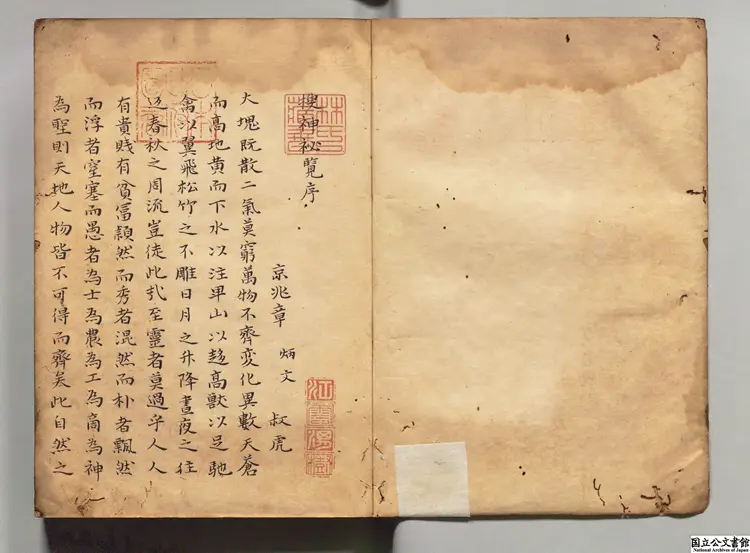 搜神祕覽序
林氏藏書
京兆章 炳文 叔虎
江雲渭樹
大塊既散二氣莫窮萬物不齊変化異數天蒼
而高地黄而下水以注卑山以趍高獸以足馳
禽以翼飛松竹之不雕日月之升降晝夜之往
返春秋之周流豈徒此哉至靈者莫過乎人人
有貴賤有貧冨頴然而秀者混然而朴者飄然
而浮者窒塞而愚者為士為農為工為商為神
為聖則天地人物皆不可得而齊矣此自然之
国立公文書館
National Archives of Japan